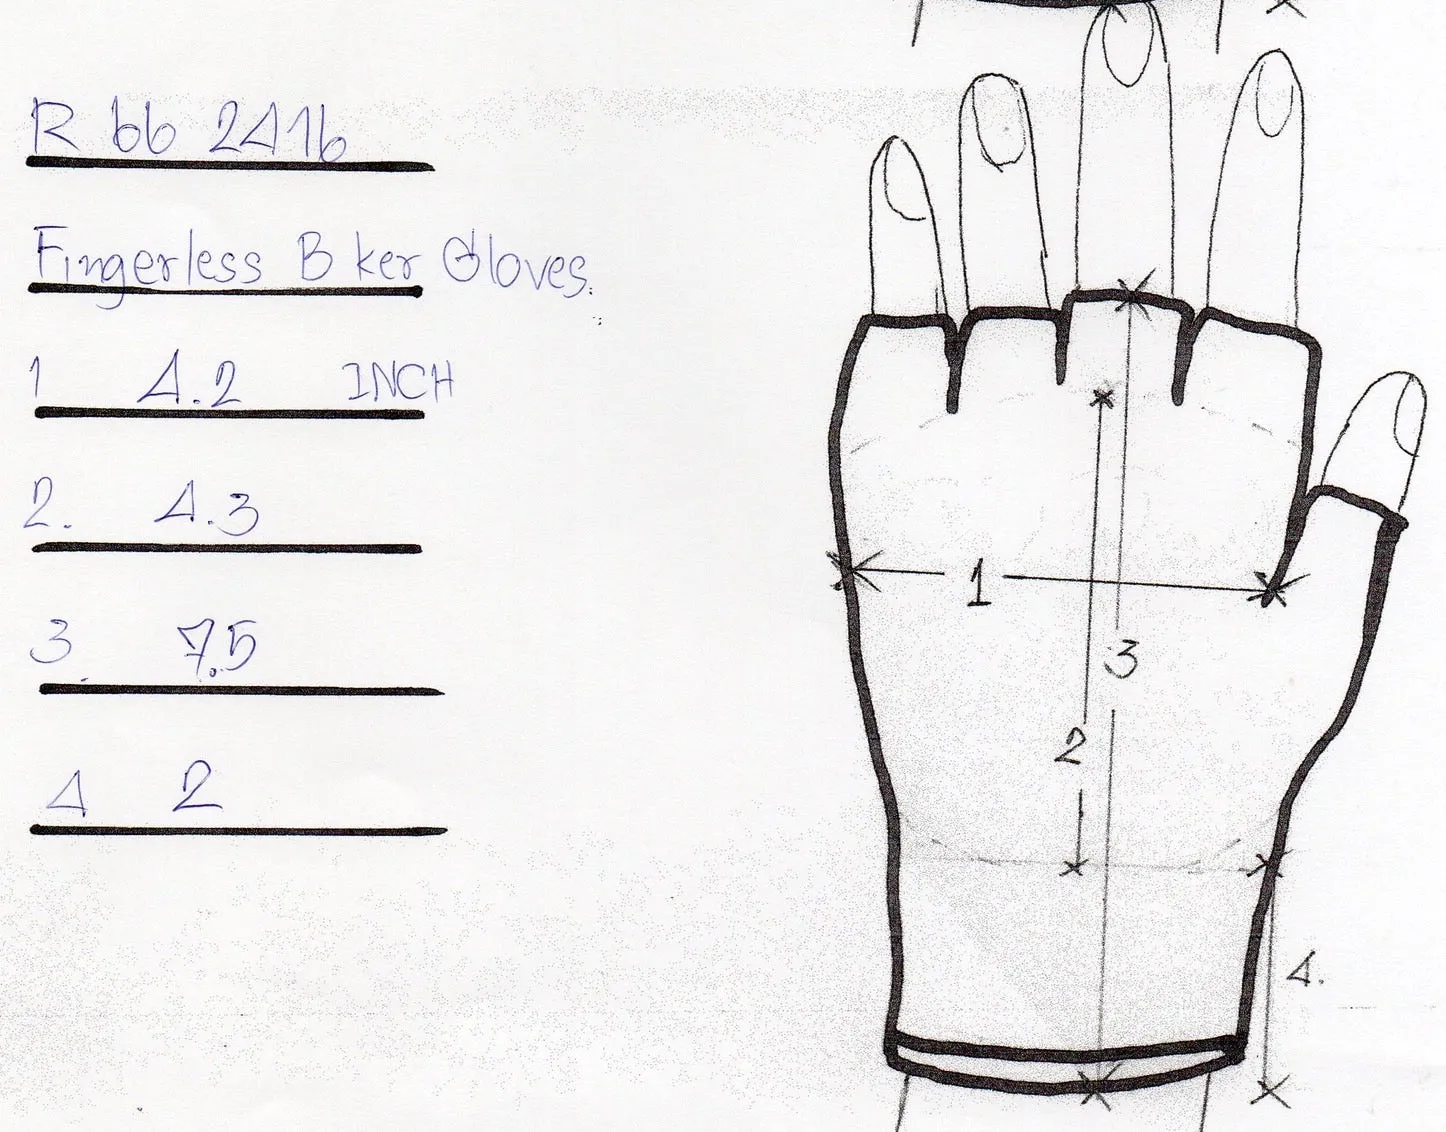 R 66 2416
Fingerless Biker Gloves.
1 4.2 INCH
2. 4.3
3. 7.5
4 2
1
3
2
4.